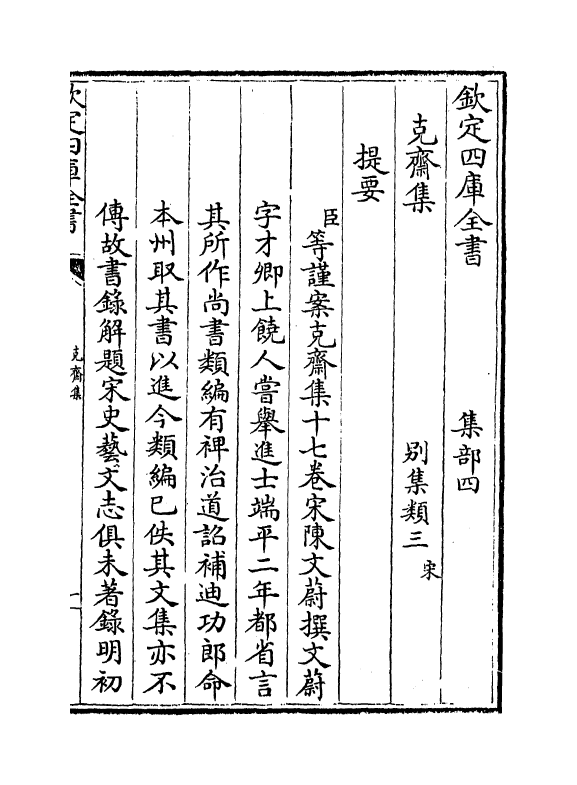 欽定四庫全書 集部四
克齋集 別集類三 宋
提要
臣等謹案克齋集十七卷宋陳文蔚撰文蔚
字才卿上饒人嘗舉進士端平二年都省言
其所作尚書類編有裨治道詔補迪功郎命
本州取其書以進今類編已佚其文集亦不
傳故書錄解題宋史藝文志俱未著錄明初
欽定四庫全書 克齋集 一